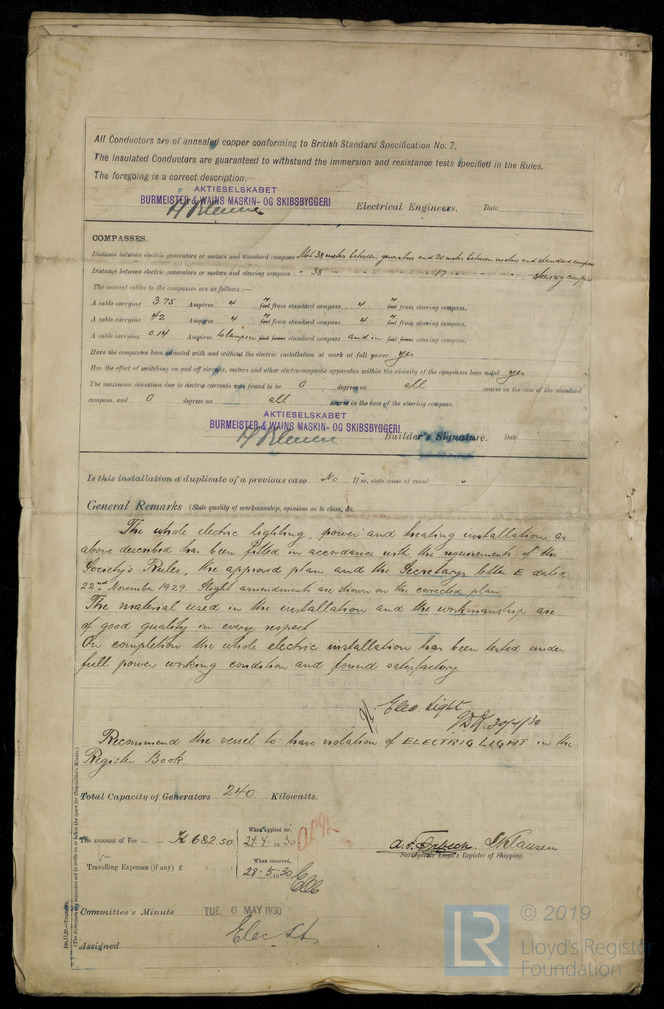 All Conductors are of annealed copper conforming to British Standard Specification No. 7.
The Insulated Conductors are guaranteed to withstand the immersion and resistance tests specified in the Rules.
The foregoing is a correct description.
AKTIESELSKABET
BURMEISTER & WAINS MASKIN- OG SKIBSBYGGERI
Electrical Engineers. Date
COMPASSES.
Distance between electric generators or motors and standard compass 38 meters between generators and 20 meters between motors and standard compass
Distance between electric generators or motors and steering compass " 38 " " " " 17 " " " " Steering compass
The nearest cables to the compasses are as follows :—
A cable carrying 3.75 Ampères 4 feet from standard compass 4 feet from steering compass.
A cable carrying 42 Ampères 4 feet from standard compass 4 feet from steering compass.
A cable carrying 0.14 Ampères to lamps feet from standard compass and in feet from steering compass.
Have the compasses been adjusted with and without the electric installation at work at full power yes
Has the effect of switching on and off circuits, motors and other electro-magnetic apparatus within the vicinity of the compasses been noted yes
The maximum deviation due to electric currents was found to be 0 degrees on all course in the case of the standard
compass, and 0 degrees on all course in the case of the steering compass.
AKTIESELSKABET
BURMEISTER & WAINS MASKIN- OG SKIBSBYGGERI
Builder's Signature. Date
Is this installation a duplicate of a previous case No If so, state name of vessel "
General Remarks (State quality of workmanship, opinions as to class, &c.
The whole electric lighting, power and heating installation as
above described has been fitted in accordance with the requirements of the
Society's Rules, the approved plan and the Secretarys letter E dated
22nd November 1929. Slight amendments are shown on the corrected plan.
The material used in the installation and the workmanship are
of good quality in every respect.
On completion the whole electric installation has been tested under
full power working condition and found satisfactory
Elec. Light
30/4/30
Recommend the vessel to have notation of ELECTRIC LIGHT in the
Register Book.
Total Capacity of Generators 240 Kilowatts.
The amount of Fee ... Kr 682.50
When applied for,
24.4.1930
Travelling Expenses (if any) £
When received,
28.5.1930
Clausen
Surveyor to Lloyd's Register of Shipping.
Committee's Minute TUE 6 MAY 1930
Assigned Elec Lt
Im.11.29.—Transfer.
(The Surveyors are requested not to write on or below the space for Committee's Minute.)
LR
© 2019
Lloyd's Register
Foundation